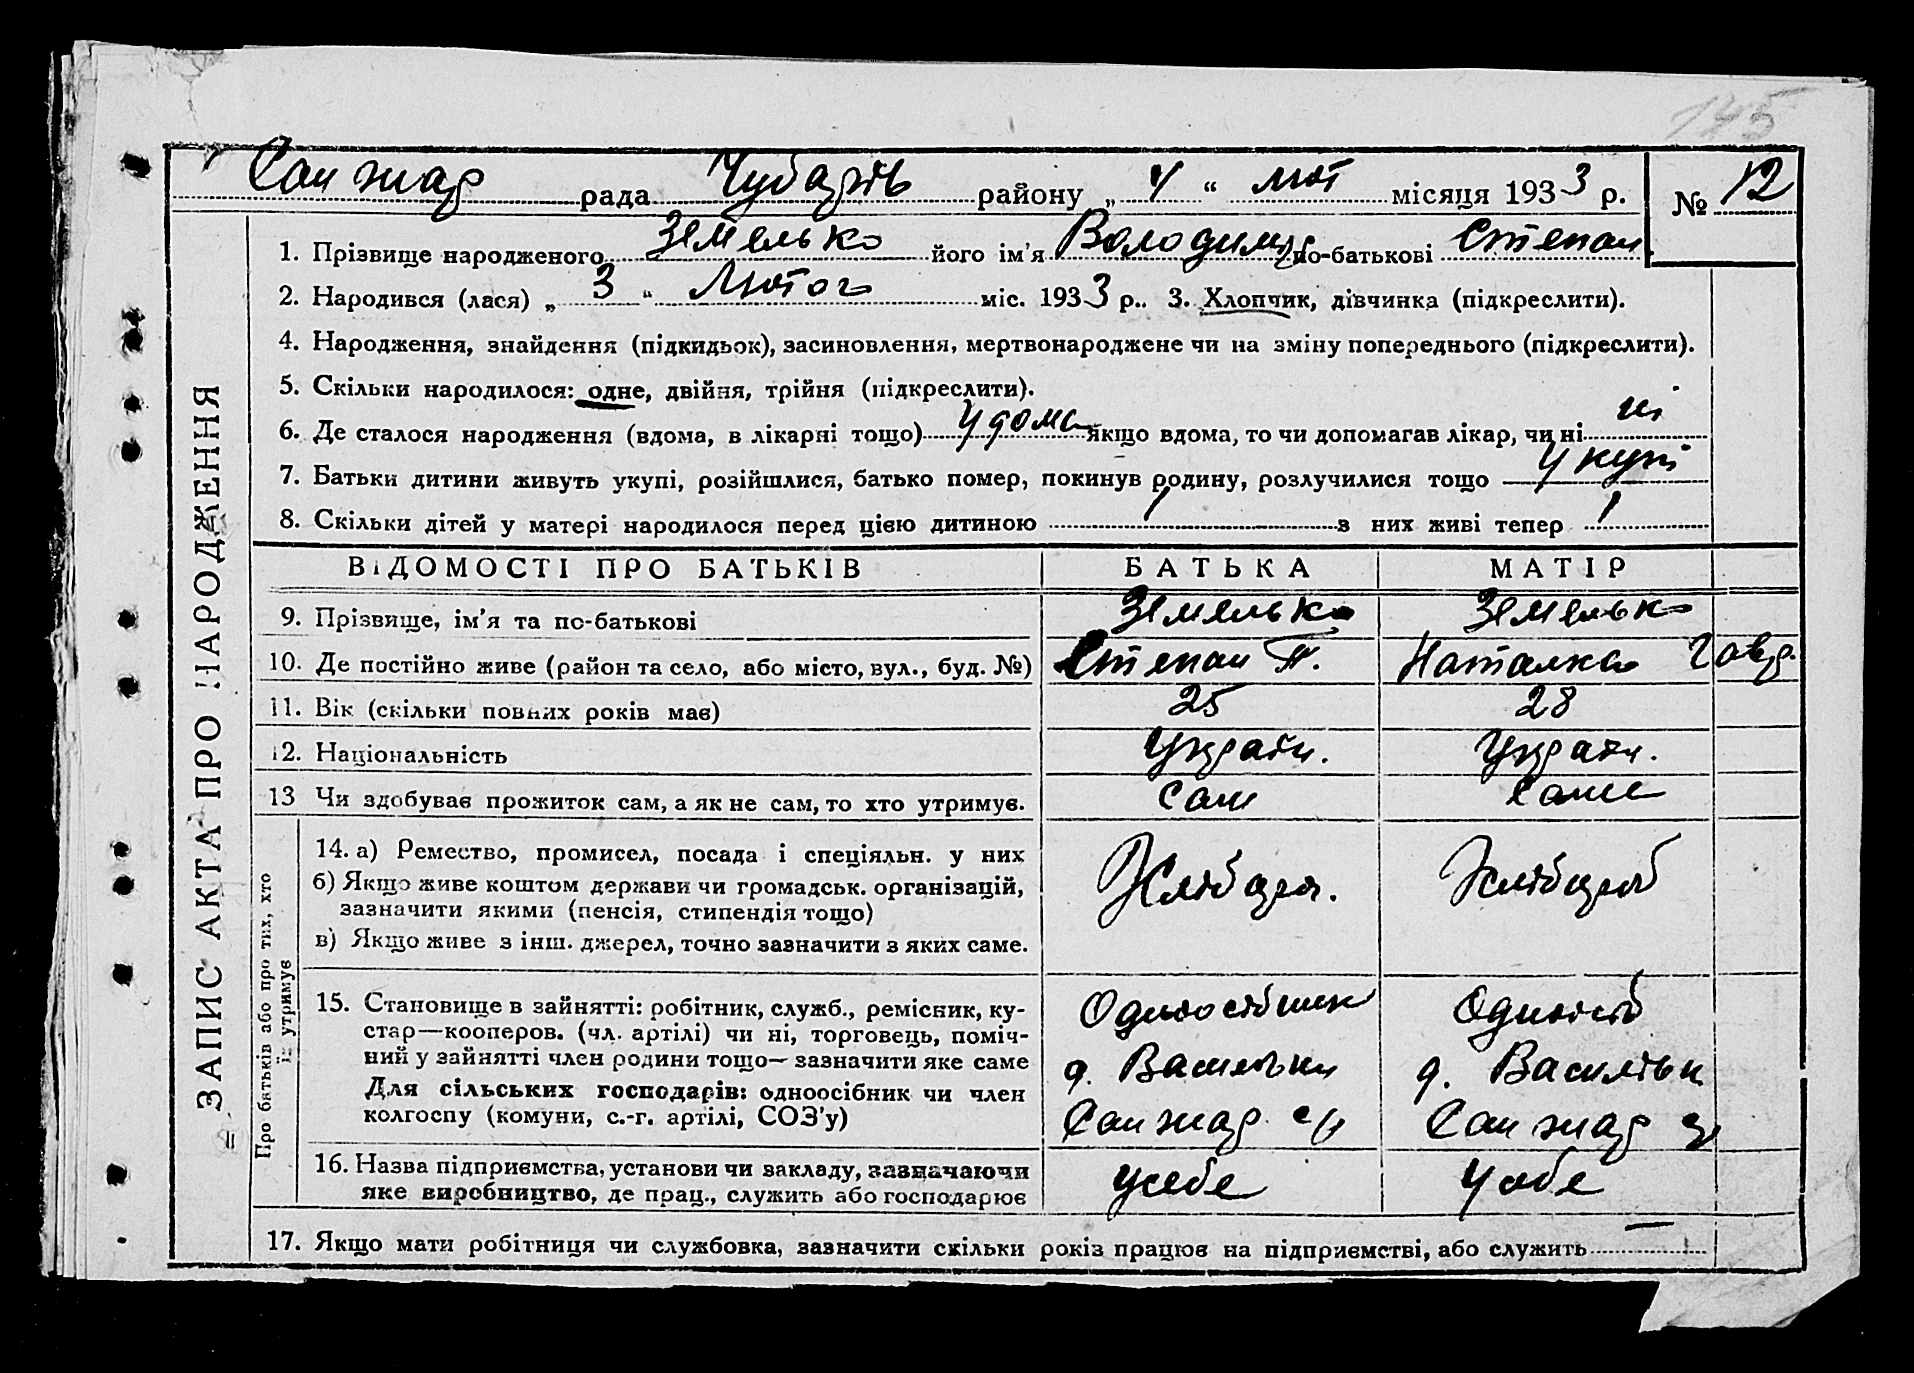 145
Санжар рада Чубарів району „ 4 “ лют місяця 1933 р. № 12
1. Прізвище народженого Земелько його ім'я Володимир по-батькові Степан.
2. Народився (лася) „ 3 “ Лютого міс. 1933 р.. 3. Хлопчик, дівчинка (підкреслити).
4. Народження, знайдення (підкидьок), засиновлення, мертвонароджене чи на зміну попереднього (підкреслити).
5. Скільки народилося: одне, двійня, трійня (підкреслити).
6. Де сталося народження (вдома, в лікарні тощо) удома якщо вдома, то чи допомагав лікар, чи ні ні
7. Батьки дитини живуть укупі, розійшлися, батько помер, покинув родину, розлучилися тощо укупі
8. Скільки дітей у матері народилося перед цією дитиною 1 з них живі тепер 1
ВІДОМОСТІ ПРО БАТЬКІВ БАТЬКА МАТІР
9. Прізвище, ім'я та по-батькові Земелько Земелько
10. Де постійно живе (район та село, або місто, вул., буд. №) Степан П. Наталка
11. Вік (скільки повних років має) 25 28
12. Національність Україн. Україн.
13 Чи здобуває прожиток сам, а як не сам, то хто утримує. Сам Саме
14. а) Ремество, промисел, посада і спеціяльн. у них Хлібороб. Хлібороб
б) Якщо живе коштом держави чи громадськ. організацій,
зазначити якими (пенсія, стипендія тощо)
в) Якщо живе з інш. джерел, точно зазначити з яких саме.
15. Становище в зайнятті: робітник, служб., ремісник, ку- Одноосібник Одноосіб
стар—кооперов. (чл. артілі) чи ні, торговець, поміч-
ний у зайнятті член родини тощо— зазначити яке саме
Для сільських господарів: одноосібник чи член
колгоспу (комуни, с.-г. артілі, СОЗ'у) Санжар с/р Санжар
16. Назва підприємства, установи чи закладу, зазначаючи у себе у себе
яке виробництво, де прац., служить або господарює
17. Якщо мати робітниця чи службовка, зазначити скільки років працює на підприємстві, або служить —
= ЗАПИС АКТА ПРО НАРОДЖЕННЯ
Про батьків або про тих, хто
їх утримує